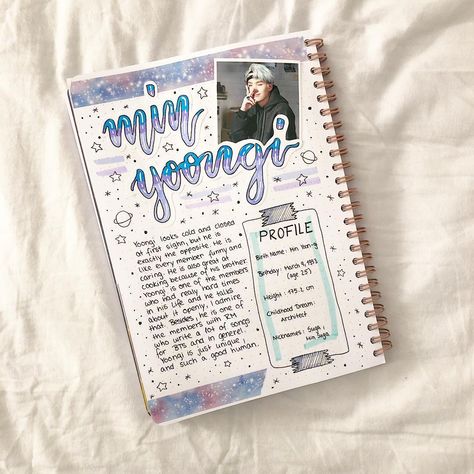 min
yoongi
Yoongi looks cold and closed
at first sighn, but he is
exactly the opposite. He is
like every member funny and
caring. He is also great at
cooking because of his brother.
Yoongi is one of the members
who had really hard times
in his life and he talks
about it openly. I admire
that. Besides, he is one of
the members with RM
who write a lot of songs
for BTS and in generel.
Yoongi is just unique
and such a good human.
PROFILE
Birth Name: Min Yoon-gi
Birthday: March 9, 1993
(age 25)
Height: 175.2 cm
Childhood Dream:
Architect
Nicknames: Suga,
Min Suga